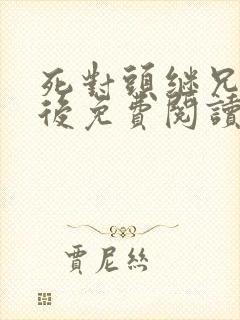 死對頭繼兄
後免費閱讀
賈尼絲